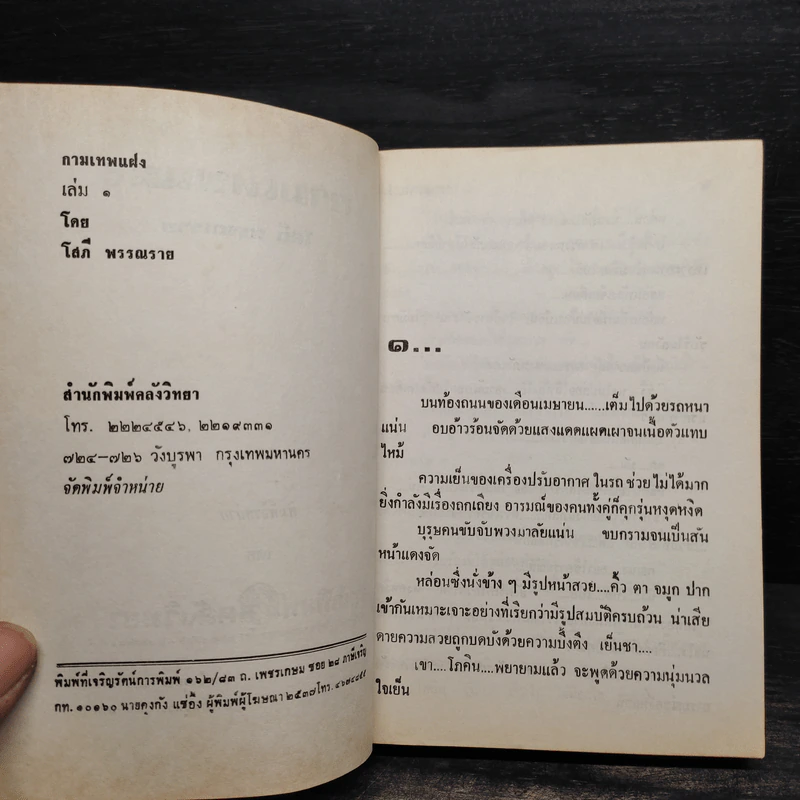 กามเทพแฝง
เล่ม ๑
โดย
โสภี พรรณราย
สำนักพิมพ์คลังวิทยา
โทร. ๒๒๒๔๕๔๖, ๒๒๑๙๓๓๑
๗๒๔-๗๒๖ วังบูรพา กรุงเทพมหานคร
จัดพิมพ์จำหน่าย
พิมพ์ที่เจริญรัตน์การพิมพ์ ๑๖๒/๘๓ ถ. เพชรเกษม ซอย ๒๘ ภาษีเจริญ
กท. ๑๐๑๖๐ นายคุงกัง แซ่อึ้ง ผู้พิมพ์ผู้โฆษณา ๒๕๓๗ โทร.
๑...
บนท้องถนนของเดือนเมษายน......เต็มไปด้วยรถหนา
แน่น อบอ้าวร้อนจัดด้วยแสงแดดแผดเผาจนเนื้อตัวแทบ
ไหม้
ความเย็นของเครื่องปรับอากาศ ในรถ ช่วย ไม่ ได้ มาก
ยิ่งกำลังมีเรื่องถกเถียง อารมณ์ของคนทั้งคู่ก็คุกรุ่นหงุดหงิด
บุรุษคนขับจับพวงมาลัยแน่น ขบกรามจนเป็นสัน
หน้าแดงจัด
หล่อนซึ่งนั่งข้าง ๆ มีรูปหน้าสวย....คิ้ว ตา จมูก ปาก
เข้ากันเหมาะเจาะอย่างที่เรียกว่ามีรูปสมบัติครบถ้วน น่าเสีย
ดายความสวยถูกบดบังด้วยความบึ้งตึง เย็นชา....
เขา....โภคิน....พยายามแล้ว จะพูดด้วยความนุ่มนวล
ใจเย็น